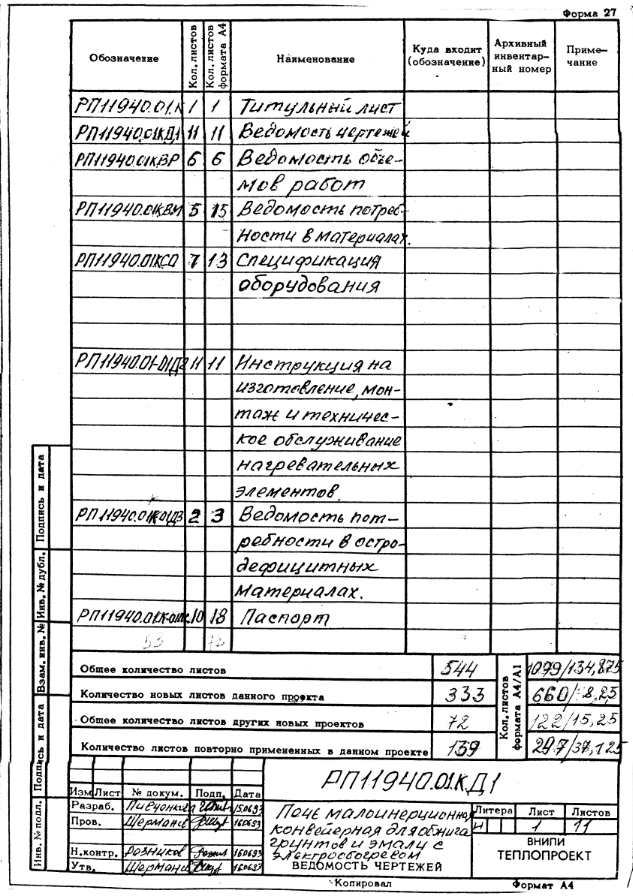 Форма 27
Обозначение Кол. листов Кол. листов формата А4 Наименование Куда входит (обозначение) Архивный инвентарный номер Примечание
РП11940.01.К 1 1 Титульный лист
РП11940.01КД1 11 11 Ведомость чертежей
РП11940.01К.ВР 6 6 Ведомость объе-
мов работ
РП11940.01К.ВМ 5 15 Ведомость потреб-
ности в материалах.
РП11940.01КСО 7 13 Спецификация
оборудования
РП11940.01-01Д2 11 11 Инструкция на
изготовление, мон-
таж и техничес-
кое обслуживание
нагревательных
элементов.
РП11940.01К-01Д3 2 3 Ведомость пот-
ребности в остро-
дефицитных
материалах.
10 18 Паспорт
Общее количество листов 544 1099/134,875
Количество новых листов данного проекта 333 660/
Общее количество листов других новых проектов 72 122/15,25
Количество листов повторно примененных в данном проекте 139 297/37,125
Кол. листов формата А4/А1
Подпись и дата
Инв. № дубл.
Взам. инв. №
Подпись и дата
Инв. № подл.
РП11940.01.КД1
Изм Лист № докум. Подп. Дата
Разраб. 150693
Пров. Шерман 160693
Н.контр. Розников 160693
Утв. Шерман 160693
Печь малоинерционная
конвейерная для обжига
грунтов и эмали с
электрообогревом
ВЕДОМОСТЬ ЧЕРТЕЖЕЙ
Литера Лист Листов
И 1 11
ВНИПИ
ТЕПЛОПРОЕКТ
Копировал Формат А4